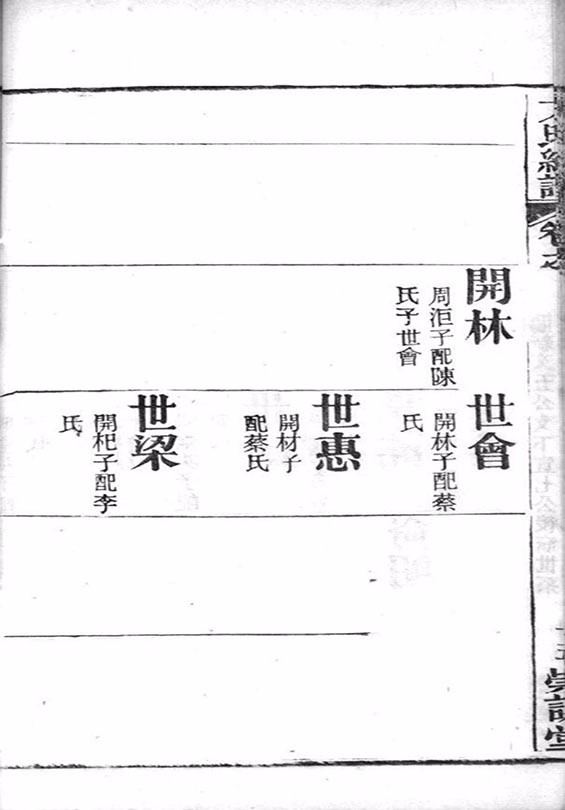 開林
周洰子配陳
氏子世會
世會
開林子配蔡
氏
世惠
開材子
配蔡氏
世梁
開杞子配李
氏
崇譜堂